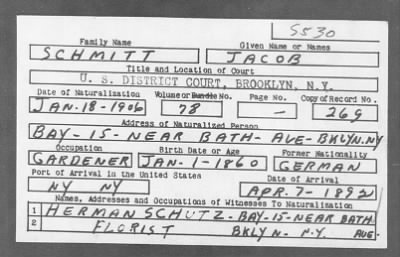 S530
Family Name Given Name or Names
SCHMITT JACOB
Title and Location of Court
U. S. DISTRICT COURT, BROOKLYN, N.Y.
Date of Naturalization Volume or Bundle No. Page No. Copy of Record No.
JAN. 18 - 1906 78 — 269
Address of Naturalized Person
BAY - 15 - NEAR BATH - AVE - BKLYN. NY
Occupation Birth Date or Age Former Nationality
GARDENER JAN - 1 - 1860 GERMAN
Port of Arrival in the United States Date of Arrival
NY NY APR. 7 - 1892
Names, Addresses and Occupations of Witnesses To Naturalization
1 HERMAN SCHUTZ - BAY - 15 - NEAR BATH
2 FLORIST BKLYN - N.Y. AVE.